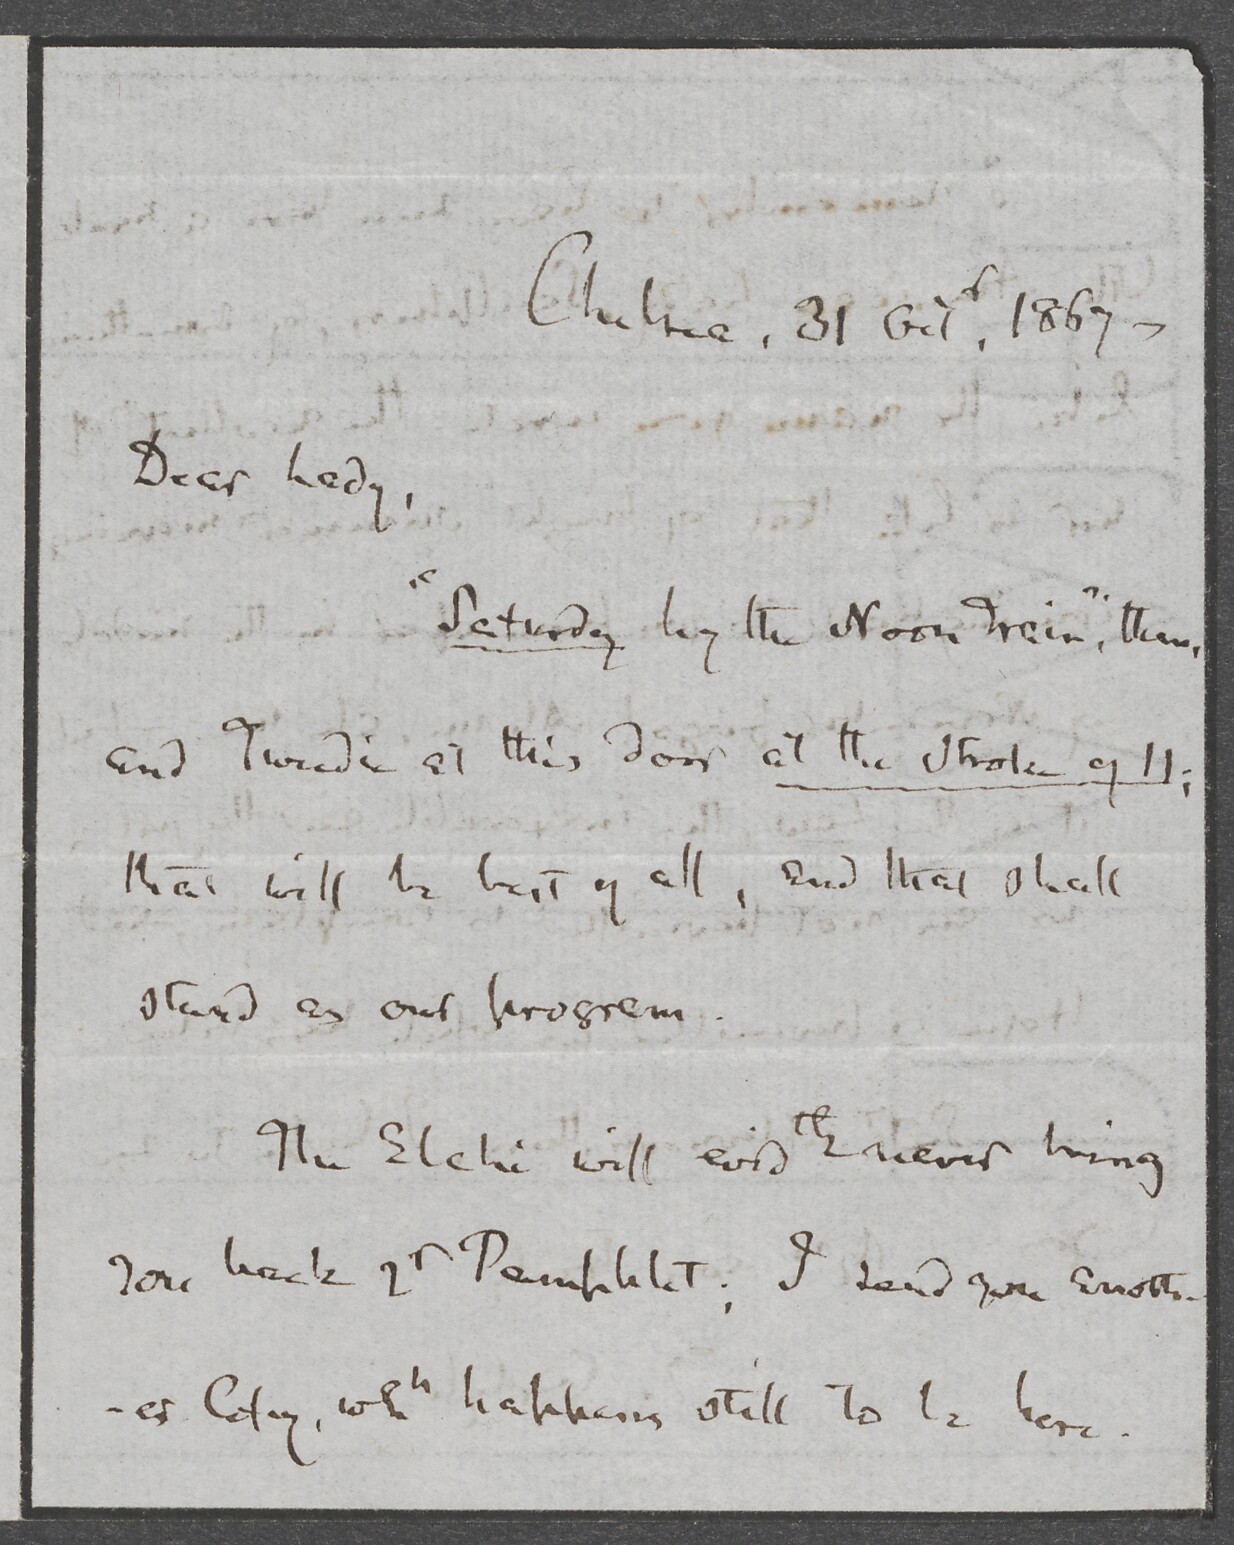 Chelsea, 31 Octr, 1867 –
Dear Lady,
"Saturday by the Noon Train", then,
and Tweedie at this door at the stroke of 11;
that will be best of all, and that shall
stand as our program.
The Elchi will evidtly never bring
you back yr Pamphlet; I send you anoth-
-er Copy, whh happens still to be here.